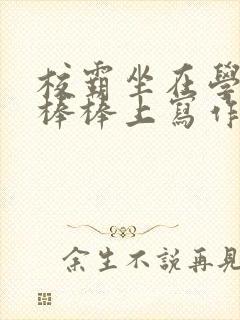 校霸坐在學
棒棒上寫作
余生不說再見